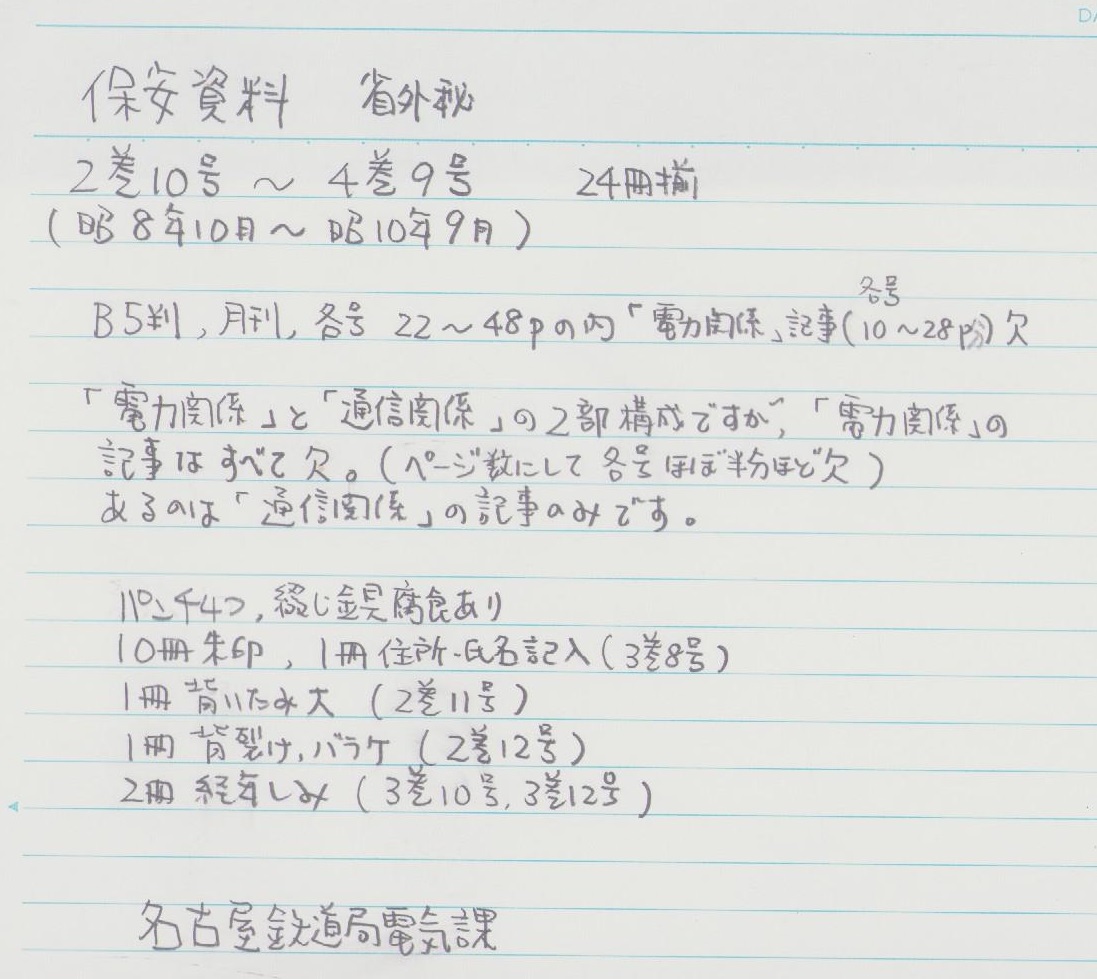 保安資料 省外秘
2巻10号 ～ 4巻9号 24冊揃
(昭8年10月～昭10年9月)
各号
B5判, 月刊, 各号 22～48pの内「電力関係」記事(10～28p分)欠
「電力関係」と「通信関係」の2部構成ですが,「電力関係」の
記事はすべて欠。(ページ数にして各号ほぼ半分ほど欠)
あるのは「通信関係」の記事のみです。
パンチ4つ, 綴じ金具腐食あり
10冊朱印, 1冊住所・氏名記入(3巻8号)
1冊 背いたみ大 (2巻11号)
1冊 背裂け, バラケ (2巻12号)
2冊 経年しみ (3巻10号, 3巻12号)
名古屋鉄道局電気課